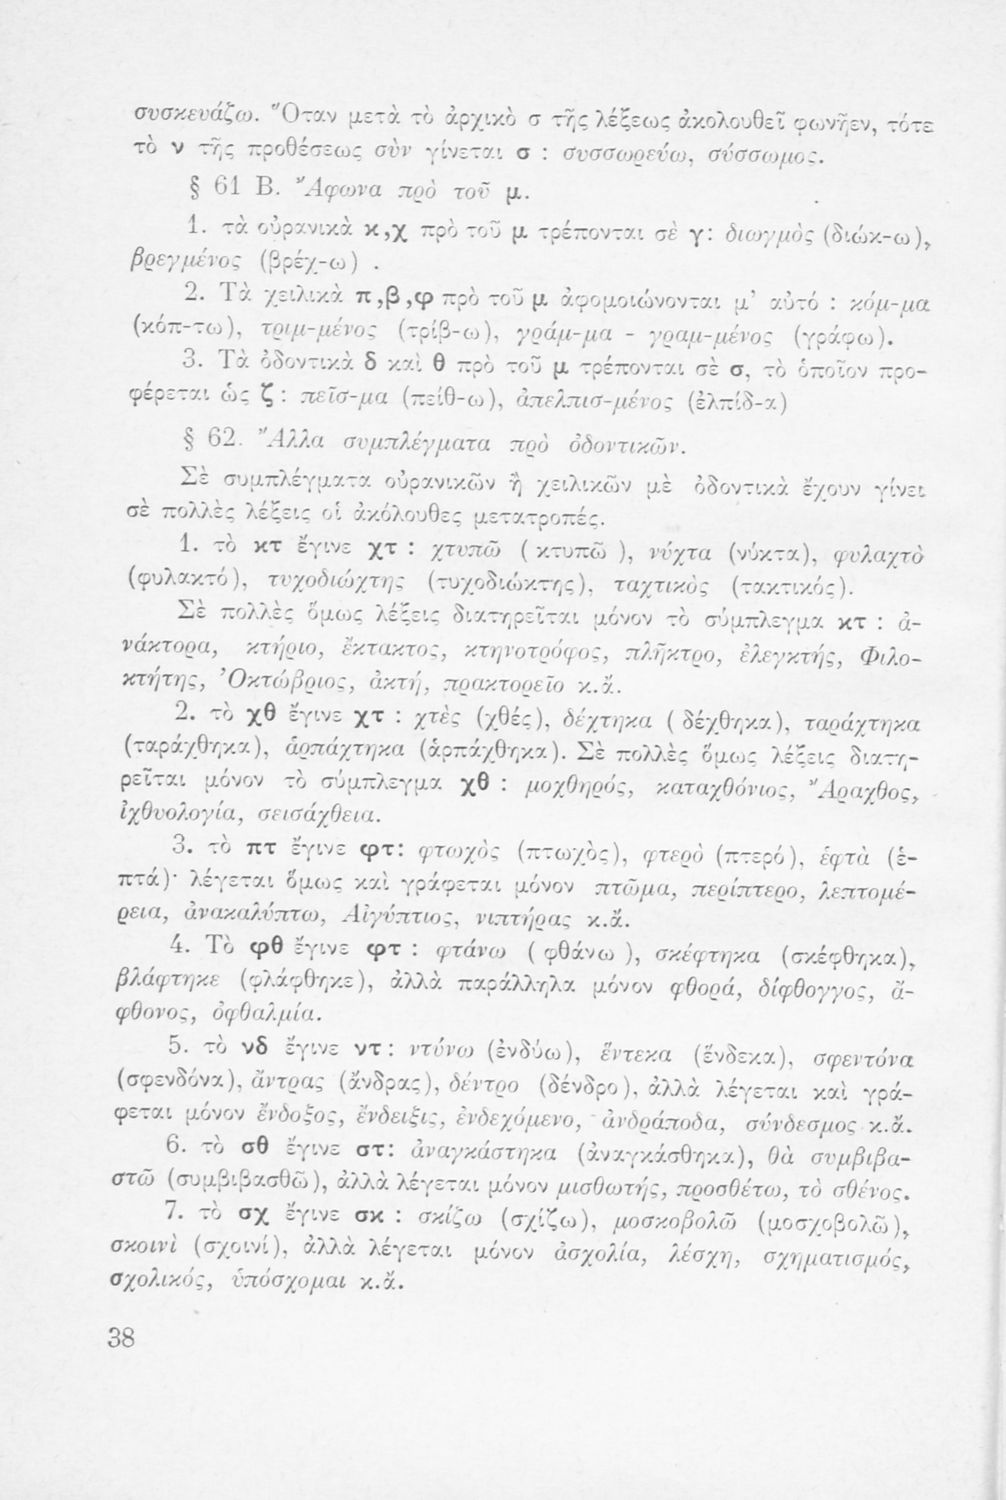 συσκευάζω. Ὅταν μετὰ τὸ ἀρχικὸ σ τῆς λέξεως ἀκολουθεῖ φωνῆεν, τότε
τὸ ν τῆς προθέσεως σὺν γίνεται σ : συσσωρεύω, σύσσωμος.
§ 61 Β. Ἄφωνα πρὸ τοῦ μ.
1. τὰ οὐρανικὰ κ,χ πρὸ τοῦ μ τρέπονται σὲ γ: διωγμὸς (διώκ-ω),
βρεγμένος (βρέχ-ω) .
2. Τὰ χειλικὰ π,β,φ πρὸ τοῦ μ ἀφομοιώνονται μ᾽ αὐτό : κόμ-μα
(κόπ-τω), τριμ-μένος (τρίβ-ω), γράμ-μα - γραμ-μένος (γράφω).
3. Τὰ ὀδοντικὰ δ καὶ θ πρὸ τοῦ μ τρέπονται σὲ σ, τὸ ὁποῖον προ-
φέρεται ὡς ζ : πεῖσ-μα (πείθ-ω), ἀπελπισ-μένος (ἐλπίδ-α)
§ 62. Ἄλλα συμπλέγματα πρὸ ὀδοντικῶν.
Σὲ συμπλέγματα οὐρανικῶν ἢ χειλικῶν μὲ ὀδοντικὰ ἔχουν γίνει
σὲ πολλὲς λέξεις οἱ ἀκόλουθες μετατροπές.
1. τὸ κτ ἔγινε χτ : χτυπῶ ( κτυπῶ ), νύχτα (νύκτα), φυλαχτὸ
(φυλακτό), τυχοδιώχτης (τυχοδιώκτης), ταχτικὸς (τακτικός).
Σὲ πολλὲς ὅμως λέξεις διατηρεῖται μόνον τὸ σύμπλεγμα κτ : ἀ-
νάκτορα, κτήριο, ἔκτακτος, κτηνοτρόφος, πλῆκτρο, ἐλεγκτής, Φιλο-
κτήτης, Ὀκτώβριος, ἀκτή, πρακτορεῖο κ.ἄ.
2. τὸ χθ ἔγινε χτ : χτὲς (χθές), δέχτηκα ( δέχθηκα), ταράχτηκα
(ταράχθηκα), ἁρπάχτηκα (ἁρπάχθηκα). Σὲ πολλὲς ὅμως λέξεις διατη-
ρεῖται μόνον τὸ σύμπλεγμα χθ : μοχθηρός, καταχθόνιος, Ἄραχθος,
ἰχθυολογία, σεισάχθεια.
3. τὸ πτ ἔγινε φτ: φτωχὸς (πτωχὸς), φτερὸ (πτερό), ἑφτὰ (ἑ-
πτά)· λέγεται ὅμως καὶ γράφεται μόνον πτῶμα, περίπτερο, λεπτομέ-
ρεια, ἀνακαλύπτω, Αἰγύπτιος, νιπτήρας κ.ἄ.
4. Τὸ φθ ἔγινε φτ : φτάνω ( φθάνω ), σκέφτηκα (σκέφθηκα),
βλάφτηκε (φλάφθηκε), ἀλλὰ παράλληλα μόνον φθορά, δίφθογγος, ἄ-
φθονος, ὀφθαλμία.
5. τὸ νδ ἔγινε ντ : ντύνω (ἐνδύω), ἕντεκα (ἕνδεκα), σφεντόνα
(σφενδόνα), ἄντρας (ἄνδρας), δέντρο (δένδρο), ἀλλὰ λέγεται καὶ γρά-
φεται μόνον ἔνδοξος, ἔνδειξις, ἐνδεχόμενο, ἀνδράποδα, σύνδεσμος κ.ἄ.
6. τὸ σθ ἔγινε στ: ἀναγκάστηκα (ἀναγκάσθηκα), θὰ συμβιβα-
στῶ (συμβιβασθῶ), ἀλλὰ λέγεται μόνον μισθωτής, προσθέτω, τὸ σθένος.
7. τὸ σχ ἔγινε σκ : σκίζω (σχίζω), μοσκοβολῶ (μοσχοβολῶ),
σκοινὶ (σχοινί), ἀλλὰ λέγεται μόνον ἀσχολία, λέσχη, σχηματισμός,
σχολικός, ὑπόσχομαι κ.ἄ.
38